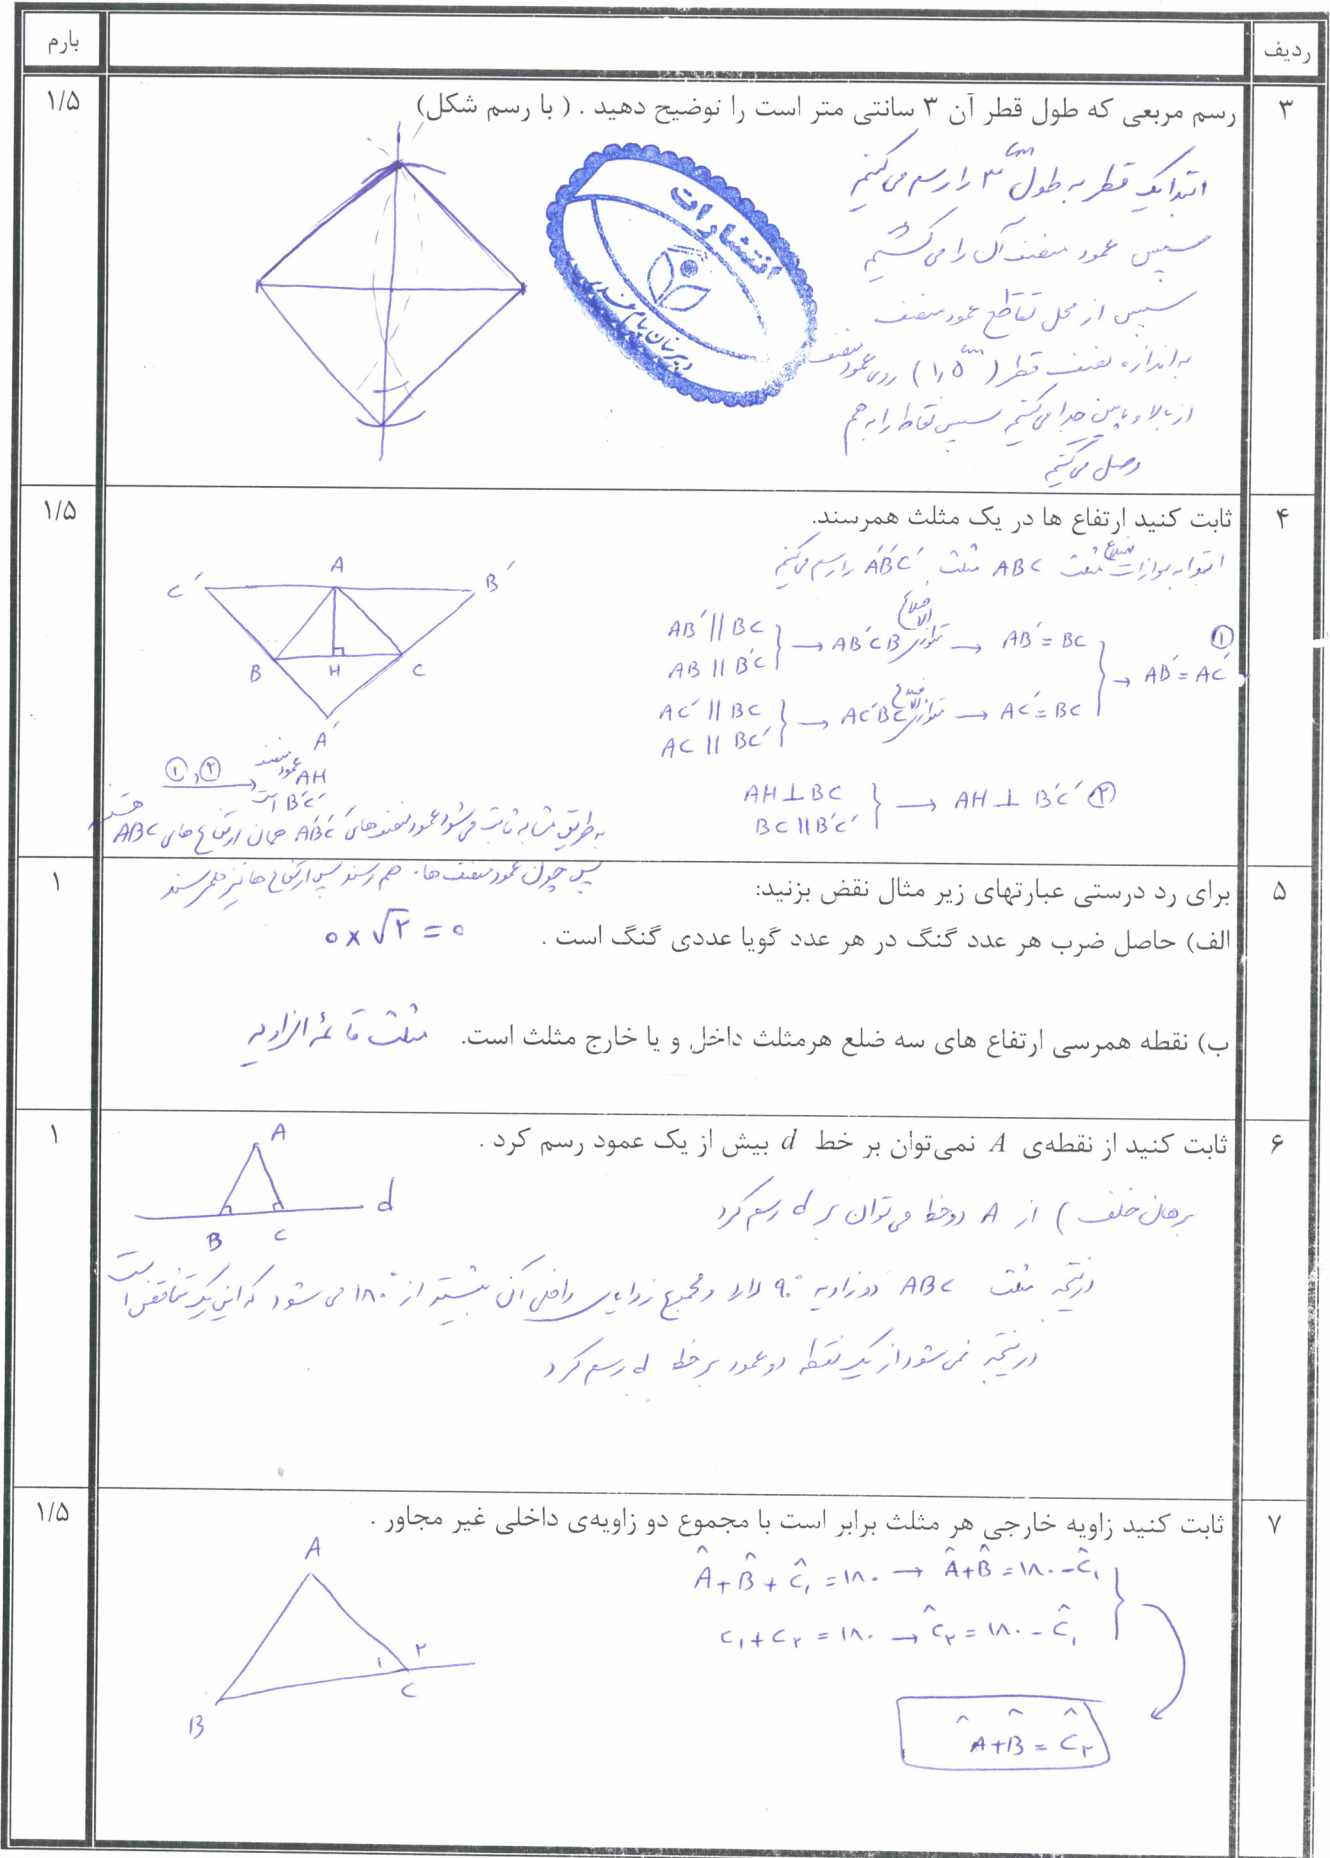 ردیف
بارم
۳
رسم مربعی که طول قطر آن ۳ سانتی متر است را توضیح دهید . ( با رسم شکل)
۱/۵
ابتدا یک قطر به طول ۳cm را رسم می کنیم
سپس عمود منصف آن را می کشیم
سپس از محل تقاطع عمود منصف
به اندازه نصف قطر (۱٫۵cm) روی عمود منصف
از بالا و پایین جدا می کنیم سپس نقاط را به هم
وصل می کنیم
انتشارات
۴
ثابت کنید ارتفاع ها در یک مثلث همرسند.
۱/۵
ابتدا به موازات اضلاع مثلث ABC مثلث A'B'C' را رسم می کنیم
C' A B'
B H C
A'
AB' || BC
AB || B'C
→ AB'CB متوازی الاضلاع → AB' = BC
AC' || BC
AC || BC'
→ AC'BC متوازی الاضلاع → AC' = BC
→ AB' = AC' ①
AH ⊥ BC
BC || B'C'
→ AH ⊥ B'C' ②
①,② → AH عمود منصف B'C' است
به طریق مشابه ثابت می شود عمود منصف های A'B'C' همان ارتفاع های ABC هستند
پس چون عمود منصف ها همرسند پس ارتفاع ها نیز همرسند
۵
برای رد درستی عبارتهای زیر مثال نقض بزنید:
۱
الف) حاصل ضرب هر عدد گنگ در هر عدد گویا عددی گنگ است .
۰ × √۲ = ۰
ب) نقطه همرسی ارتفاع های سه ضلع هرمثلث داخل و یا خارج مثلث است.
مثلث قائم الزاویه
۶
ثابت کنید از نقطه‌ی A نمی‌توان بر خط d بیش از یک عمود رسم کرد .
۱
A
d
B C
برهان خلف ) از A دو خط می توان بر d رسم کرد
در نتیجه مثلث ABC دو زاویه ۹۰° دارد و مجموع زوایای داخلی آن بیشتر از ۱۸۰° می شود که این یک تناقض است
در نتیجه نمی شود از یک نقطه دو عمود بر خط d رسم کرد
۷
ثابت کنید زاویه خارجی هر مثلث برابر است با مجموع دو زاویه‌ی داخلی غیر مجاور .
۱/۵
A
۱ ۲
B C
Â + B̂ + Ĉ₁ = ۱۸۰ → Â + B̂ = ۱۸۰ - Ĉ₁
C₁ + C₂ = ۱۸۰ → Ĉ₂ = ۱۸۰ - Ĉ₁
Â + B̂ = Ĉ₂